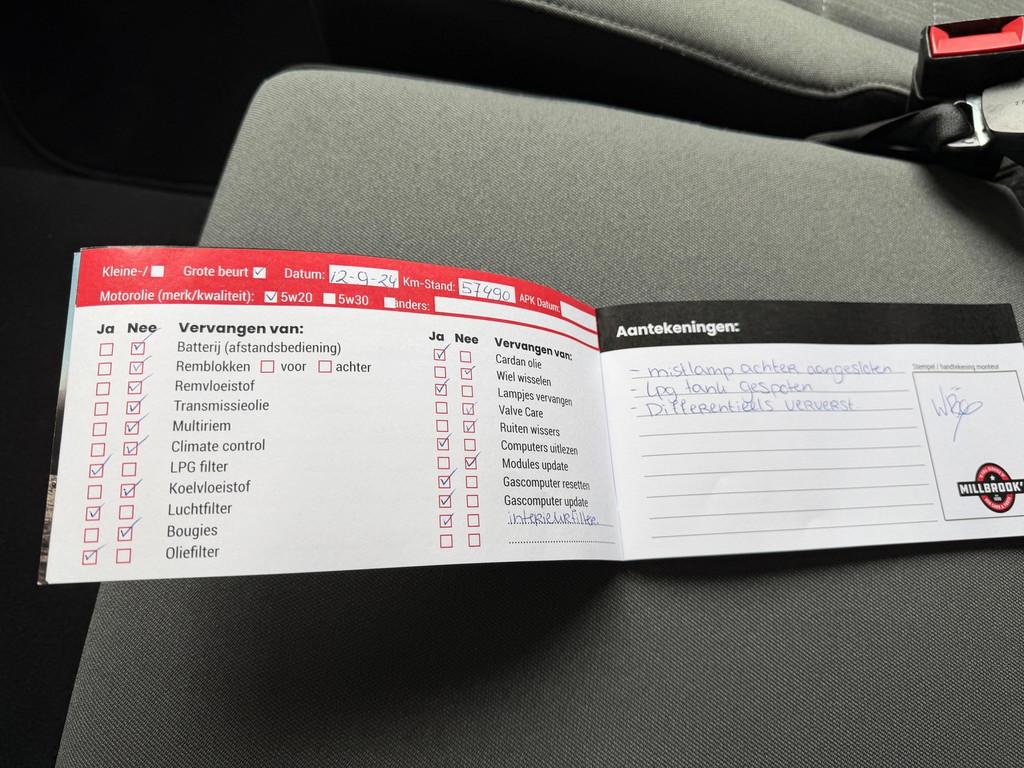 Kleine-/ Grote beurt Datum: 12-9-24 Km-Stand: 57490 APK Datum:
Motorolie (merk/kwaliteit): 5w20 5w30 anders:
Ja Nee Vervangen van:
Batterij (afstandsbediening)
Remblokken voor achter
Remvloeistof
Transmissieolie
Multiriem
Climate control
LPG filter
Koelvloeistof
Luchtfilter
Bougies
Oliefilter
Ja Nee Vervangen van:
Cardan olie
Wiel wisselen
Lampjes vervangen
Valve Care
Ruiten wissers
Computers uitlezen
Modules update
Gascomputer resetten
Gascomputer update
interieurfilter
Aantekeningen:
- mistlamp achter aangesloten
- lpg tank gespoten
- Differentieels ververst
Stempel / handtekening monteur
MILLBROOK'